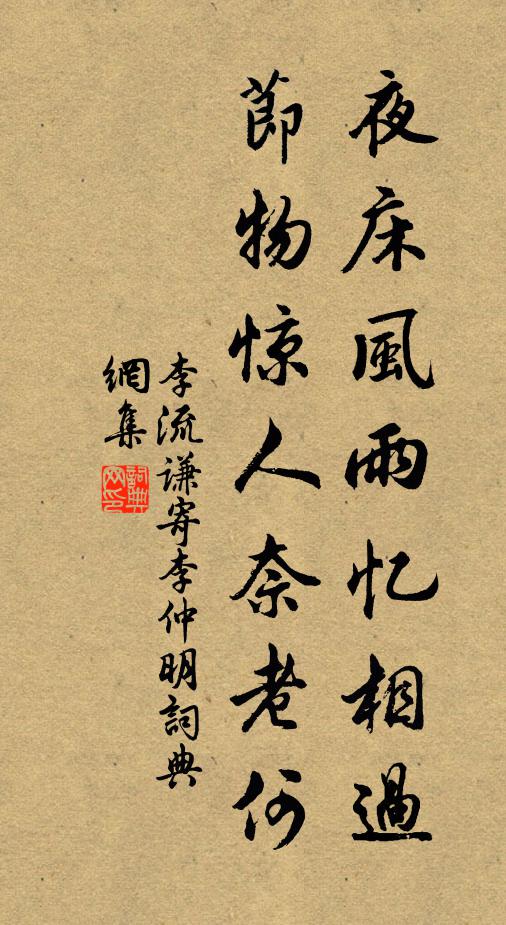 夜床風雨忆相過
節物惊人奈老何
李流謙寄李仲明詞典
網集
詞典网印